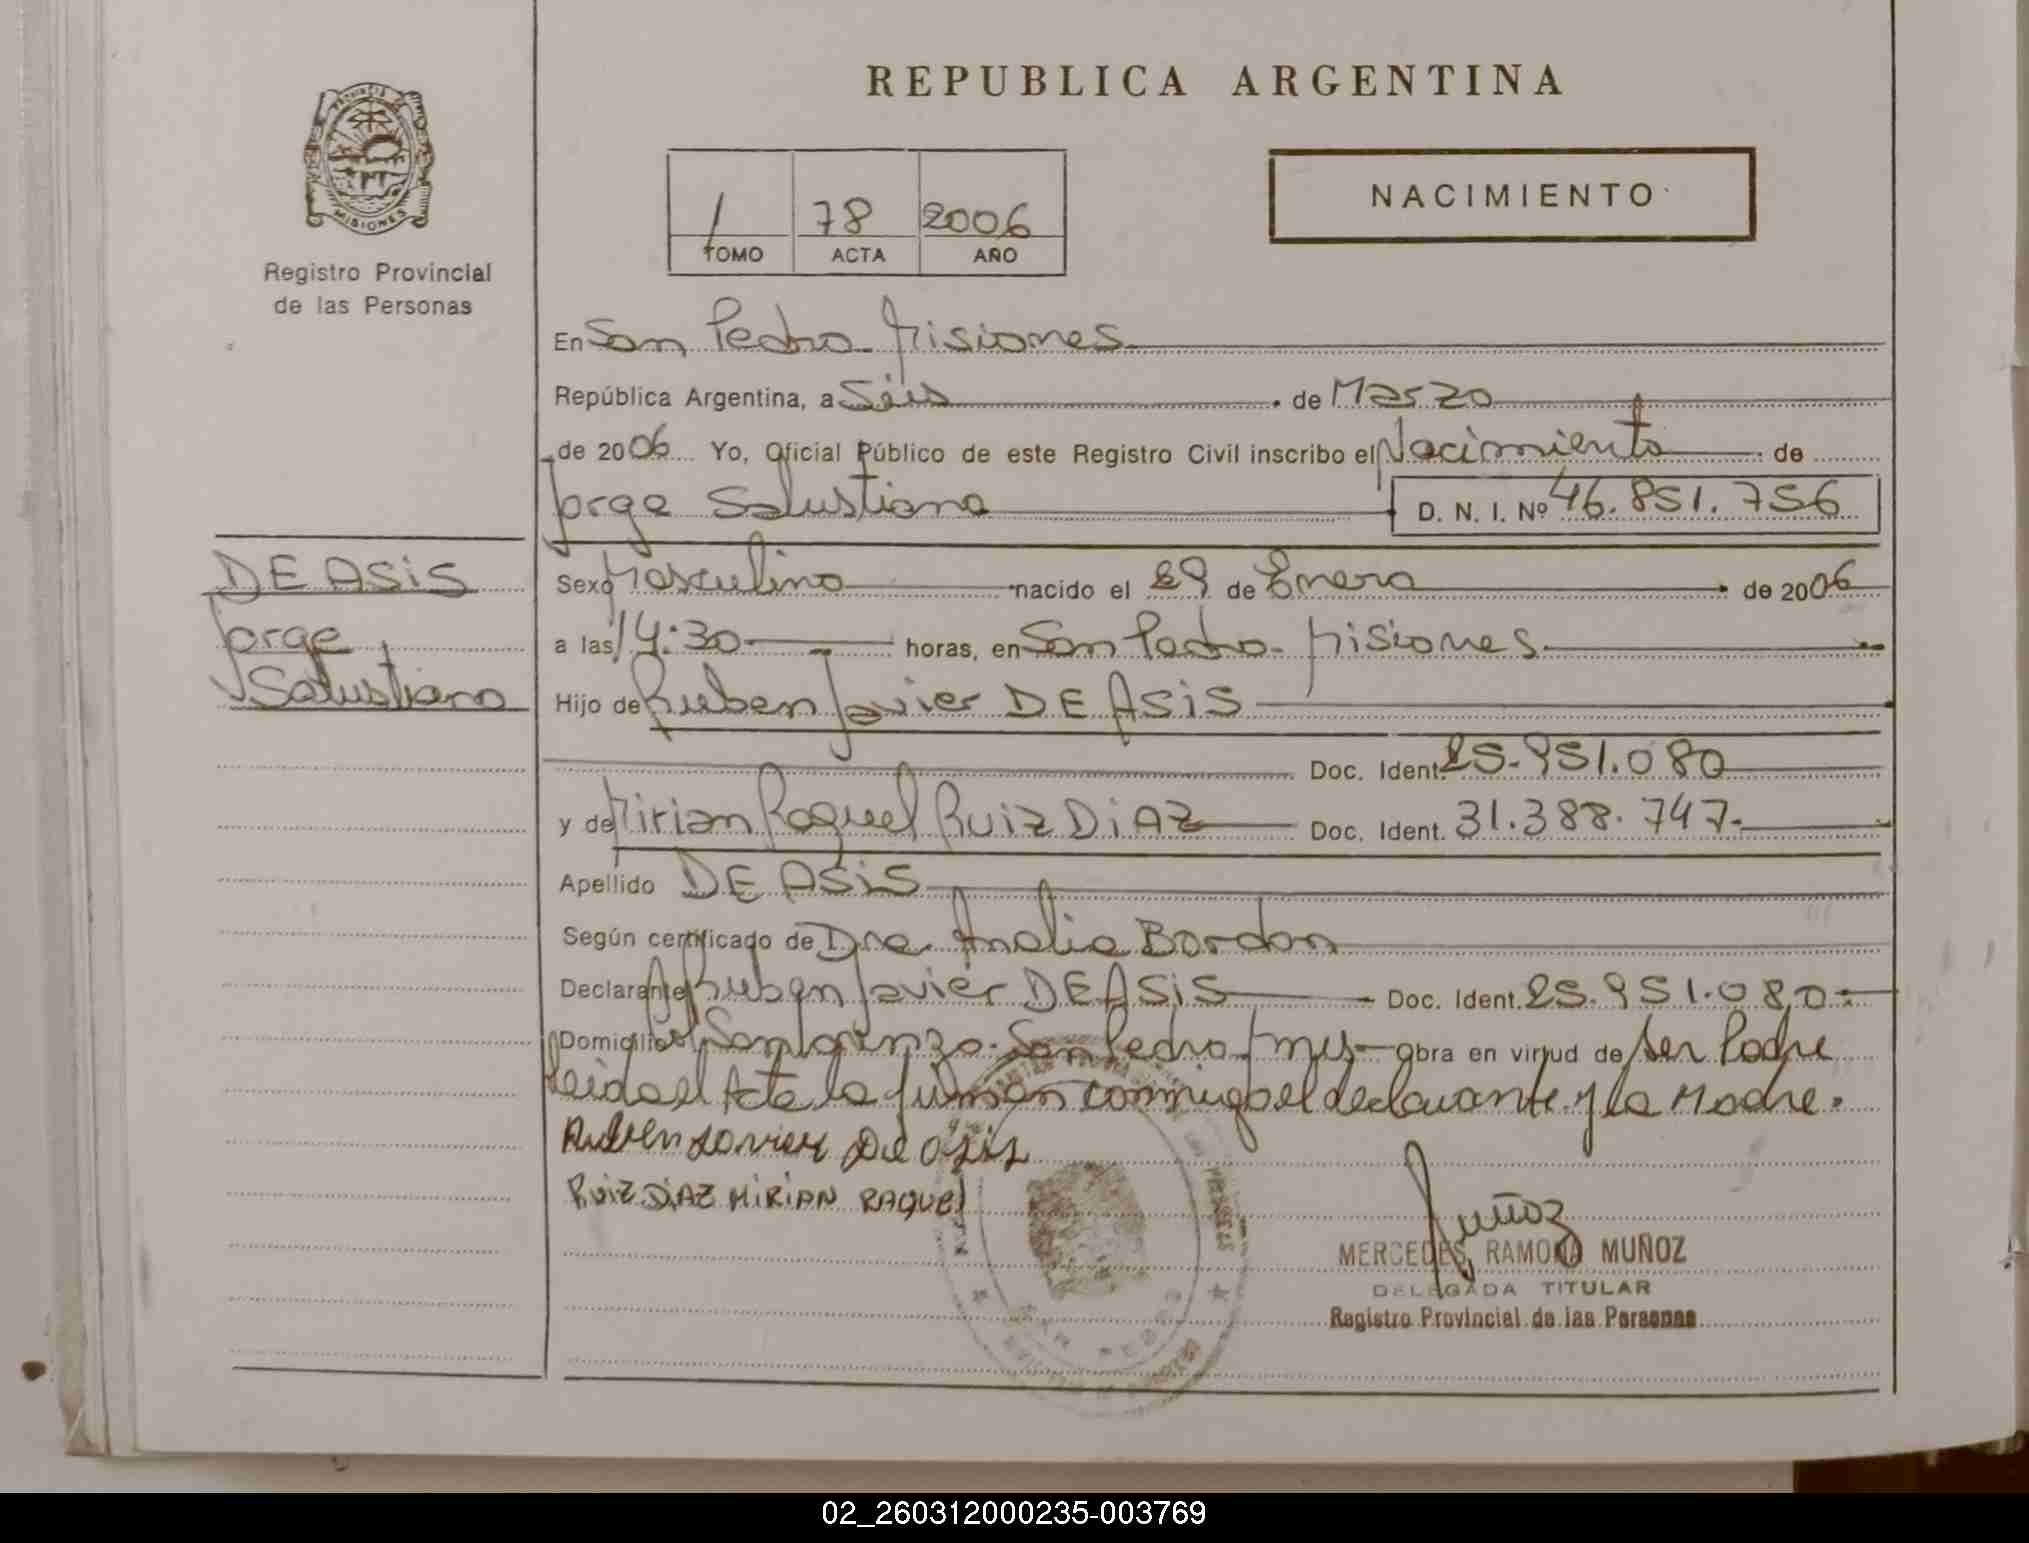 REPUBLICA ARGENTINA
PROVINCIA DE
MISIONES
Registro Provincial
de las Personas
1 78 2006
TOMO ACTA AÑO
NACIMIENTO
En San Pedro Misiones
República Argentina, a Seis de Marzo
de 2006 Yo, Oficial Público de este Registro Civil inscribo el Nacimiento de
Jorge Salustiano D. N. I. Nº 46.851.756
DE ASiS
Jorge
Salustiano
Sexo Masculino nacido el 29 de Enero de 2006
a las 14:30 horas, en San Pedro - Misiones
Hijo de Ruben Javier DE ASiS
Doc. Ident. 25.951.080
y de Mirian Raquel Ruiz DiAZ Doc. Ident. 31.388.747.-
Apellido DE ASiS
Según certificado de Dra. Analia Bordon
Declarante Ruben Javier DE ASiS Doc. Ident. 25.951.080.-
Domicilio San Lorenzo - San Pedro Mnes obra en virtud de ser Padre
Leida el Acta la firman conmigo el declarante y la Madre.
Ruben Javier De asis
RUIZ DIAZ MIRIAN RAQUEL
Muñoz
MERCEDES RAMONA MUÑOZ
DELEGADA TITULAR
Registro Provincial de las Personas
02_260312000235-003769